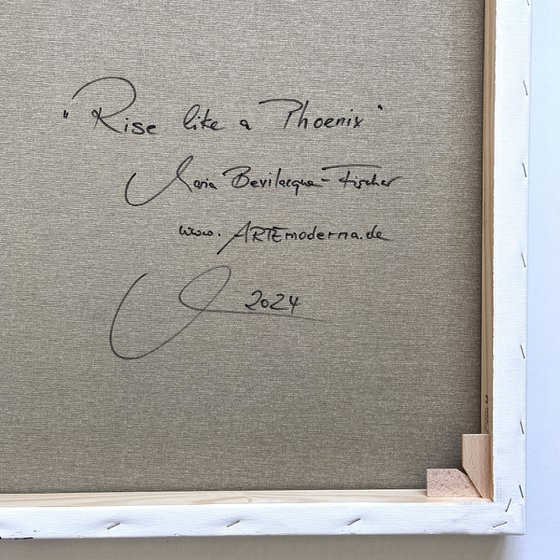 "Rise like a Phoenix"
Maria Bevilacqua-Fischer
www.ARTEmoderna.de
2024